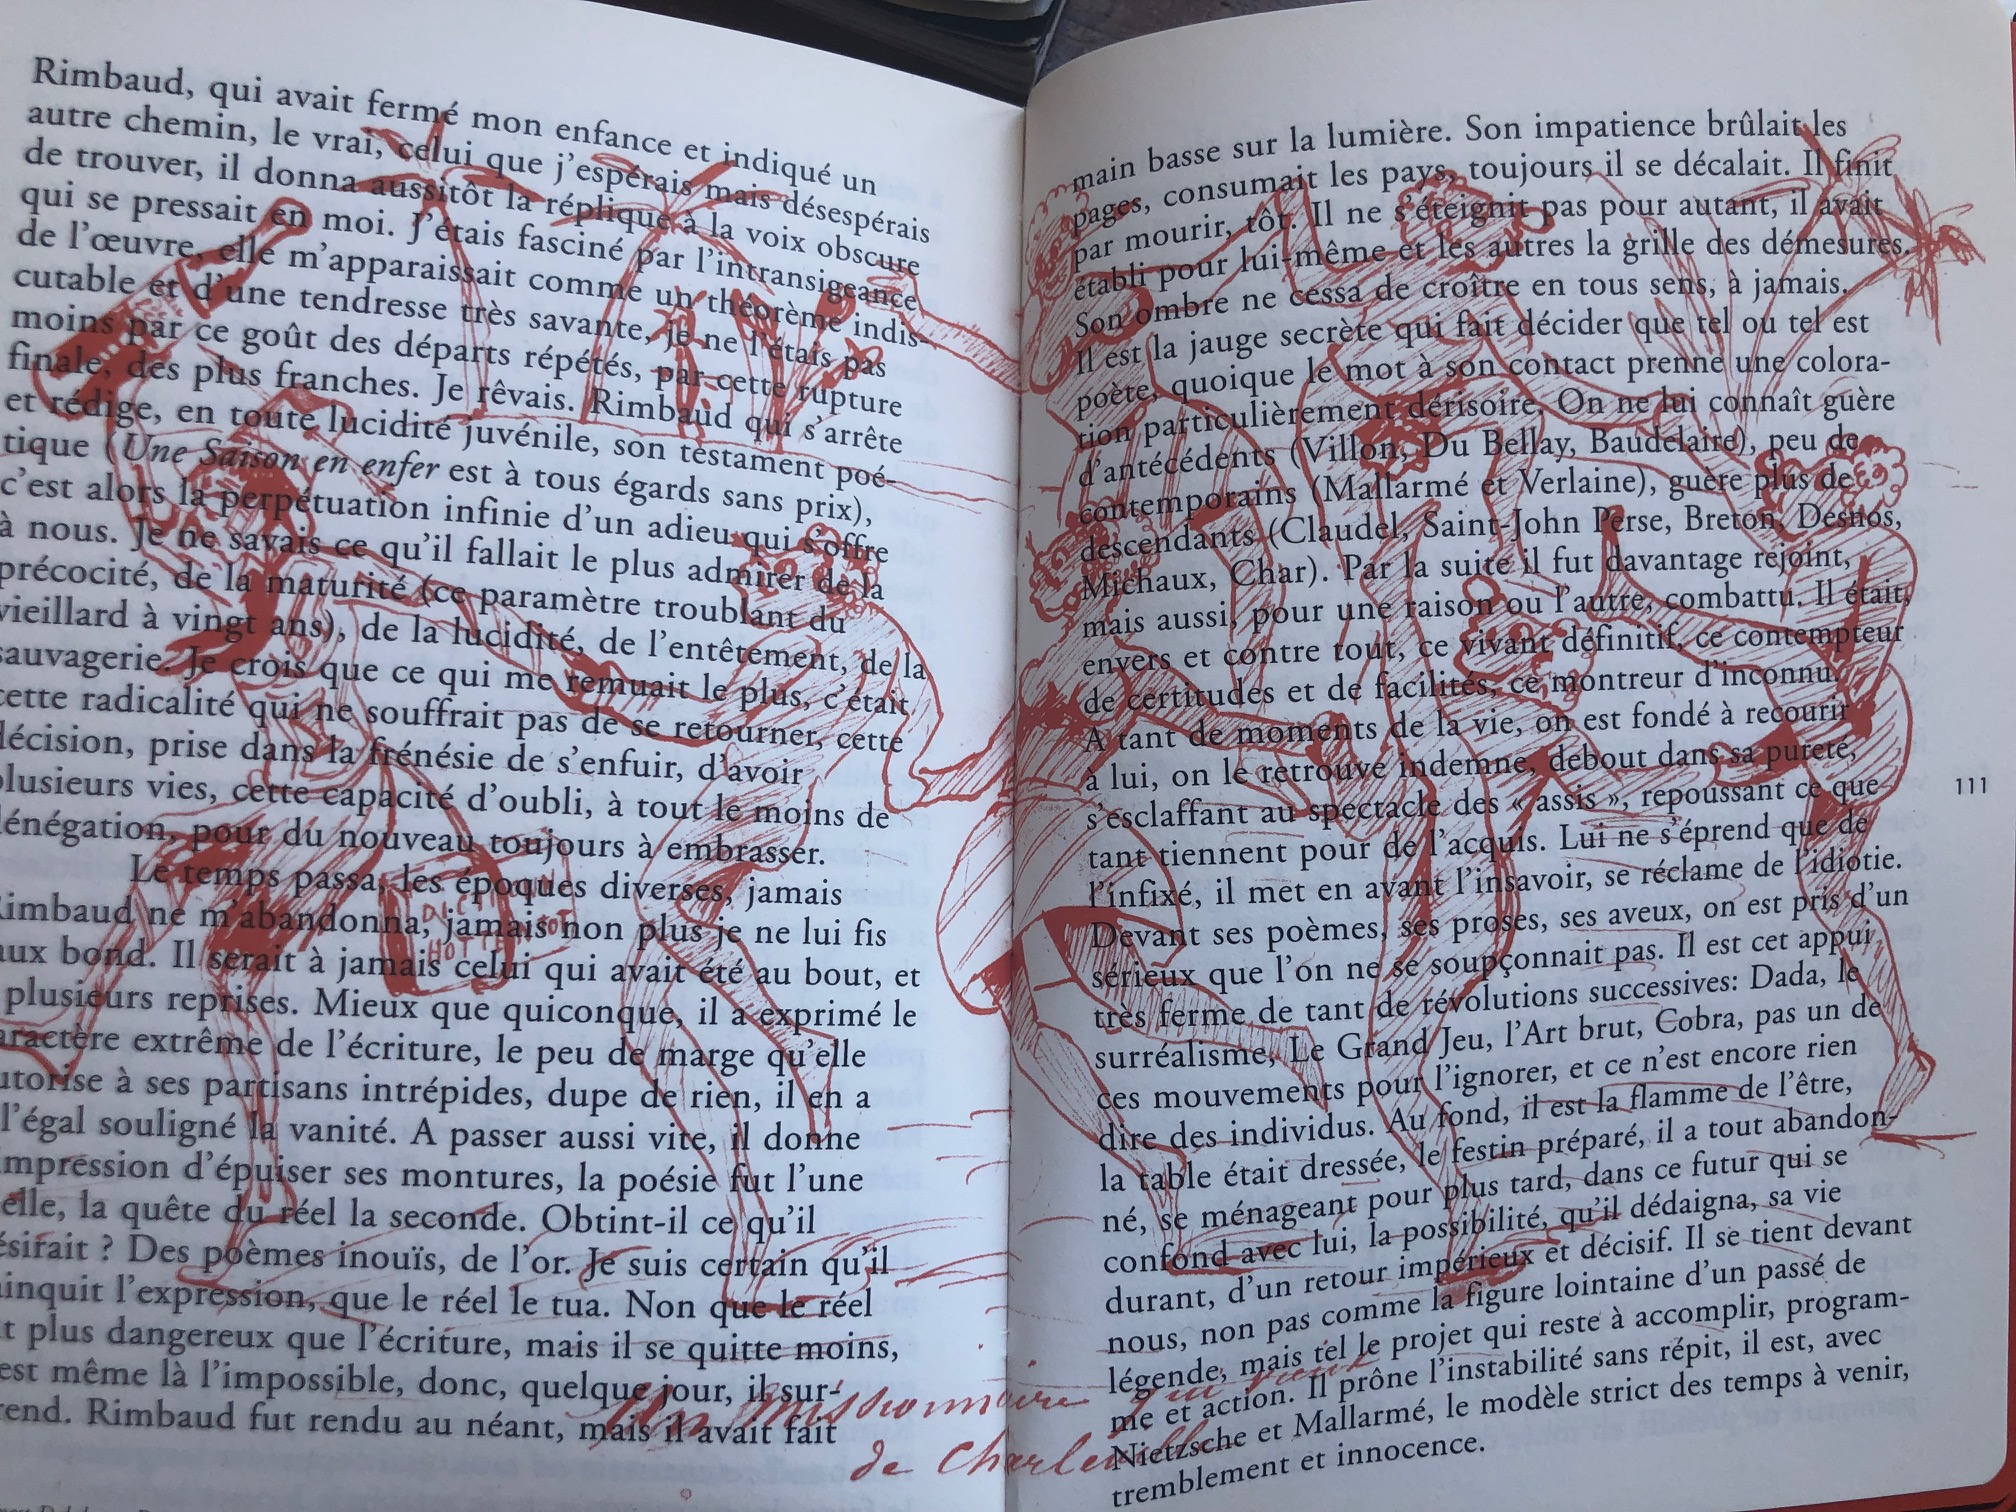 Rimbaud, qui avait fermé mon enfance et indiqué un
autre chemin, le vrai, celui que j'espérais mais désespérais
de trouver, il donna aussitôt la réplique à la voix obscure
qui se pressait en moi. J'étais fasciné par l'intransigeance
de l'œuvre, elle m'apparaissait comme un théorème indis-
cutable et d'une tendresse très savante, je ne l'étais pas
moins par ce goût des départs répétés, par cette rupture
finale, des plus franches. Je rêvais. Rimbaud qui s'arrête
et rédige, en toute lucidité juvénile, son testament poé-
tique (Une Saison en enfer est à tous égards sans prix),
c'est alors la perpétuation infinie d'un adieu qui s'offre
à nous. Je ne savais ce qu'il fallait le plus admirer de la
précocité, de la maturité (ce paramètre troublant du
vieillard à vingt ans), de la lucidité, de l'entêtement, de la
sauvagerie. Je crois que ce qui me remuait le plus, c'était
cette radicalité qui ne souffrait pas de se retourner, cette
décision, prise dans la frénésie de s'enfuir, d'avoir
plusieurs vies, cette capacité d'oubli, à tout le moins de
dénégation, pour du nouveau toujours à embrasser.
Le temps passa, les époques diverses, jamais
Rimbaud ne m'abandonna, jamais non plus je ne lui fis
aux bond. Il serait à jamais celui qui avait été au bout, et
plusieurs reprises. Mieux que quiconque, il a exprimé le
aractère extrême de l'écriture, le peu de marge qu'elle
utorise à ses partisans intrépides, dupe de rien, il en a
l'égal souligné la vanité. A passer aussi vite, il donne
impression d'épuiser ses montures, la poésie fut l'une
elle, la quête du réel la seconde. Obtint-il ce qu'il
ésirait ? Des poèmes inouïs, de l'or. Je suis certain qu'il
ainquit l'expression, que le réel le tua. Non que le réel
t plus dangereux que l'écriture, mais il se quitte moins,
est même là l'impossible, donc, quelque jour, il sur-
rend. Rimbaud fut rendu au néant, mais il avait fait
main basse sur la lumière. Son impatience brûlait les
pages, consumait les pays, toujours il se décalait. Il finit
par mourir, tôt. Il ne s'éteignit pas pour autant, il avait
établi pour lui-même et les autres la grille des démesures.
Son ombre ne cessa de croître en tous sens, à jamais.
Il est la jauge secrète qui fait décider que tel ou tel est
poète, quoique le mot à son contact prenne une colora-
tion particulièrement dérisoire. On ne lui connaît guère
d'antécédents (Villon, Du Bellay, Baudelaire), peu de
contemporains (Mallarmé et Verlaine), guère plus de
descendants (Claudel, Saint-John Perse, Breton, Desnos,
Michaux, Char). Par la suite il fut davantage rejoint,
mais aussi, pour une raison ou l'autre, combattu. Il était,
envers et contre tout, ce vivant définitif, ce contempteur
de certitudes et de facilités, ce montreur d'inconnu.
A tant de moments de la vie, on est fondé à recourir
à lui, on le retrouve indemne, debout dans sa pureté,
s'esclaffant au spectacle des « assis », repoussant ce que
tant tiennent pour de l'acquis. Lui ne s'éprend que de
l'infixé, il met en avant l'insavoir, se réclame de l'idiotie.
Devant ses poèmes, ses proses, ses aveux, on est pris d'un
sérieux que l'on ne se soupçonnait pas. Il est cet appui
très ferme de tant de révolutions successives: Dada, le
surréalisme, Le Grand Jeu, l'Art brut, Cobra, pas un de
ces mouvements pour l'ignorer, et ce n'est encore rien
dire des individus. Au fond, il est la flamme de l'être,
la table était dressée, le festin préparé, il a tout abandon-
né, se ménageant pour plus tard, dans ce futur qui se
confond avec lui, la possibilité, qu'il dédaigna, sa vie
durant, d'un retour impérieux et décisif. Il se tient devant
nous, non pas comme la figure lointaine d'un passé de
légende, mais tel le projet qui reste à accomplir, program-
me et action. Il prône l'instabilité sans répit, il est, avec
Nietzsche et Mallarmé, le modèle strict des temps à venir,
tremblement et innocence.
111
Un missionnaire qui vient
de Charleville